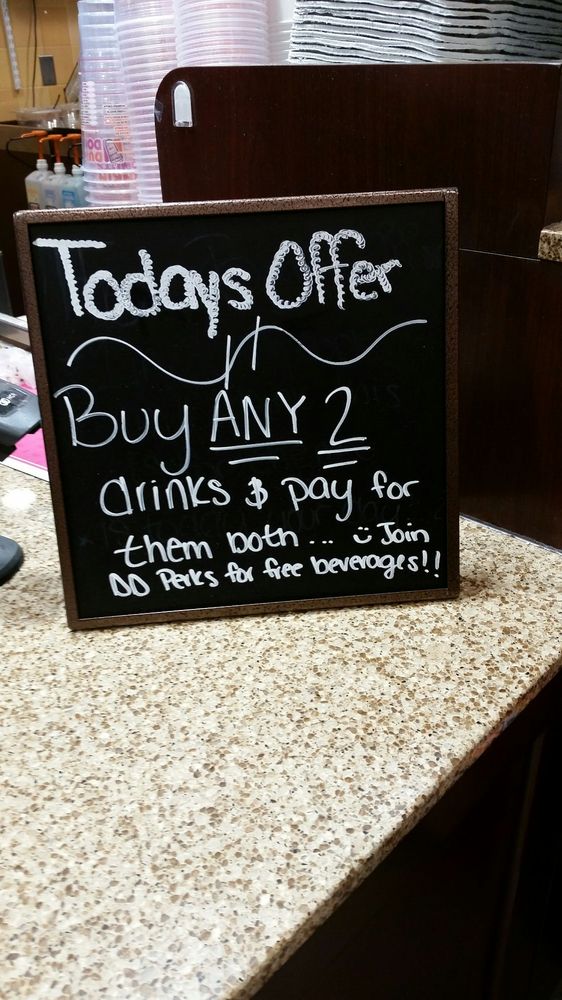 Todays Offer
Buy ANY 2
drinks & pay for
them both ... Join
DD Perks for free beverages!!